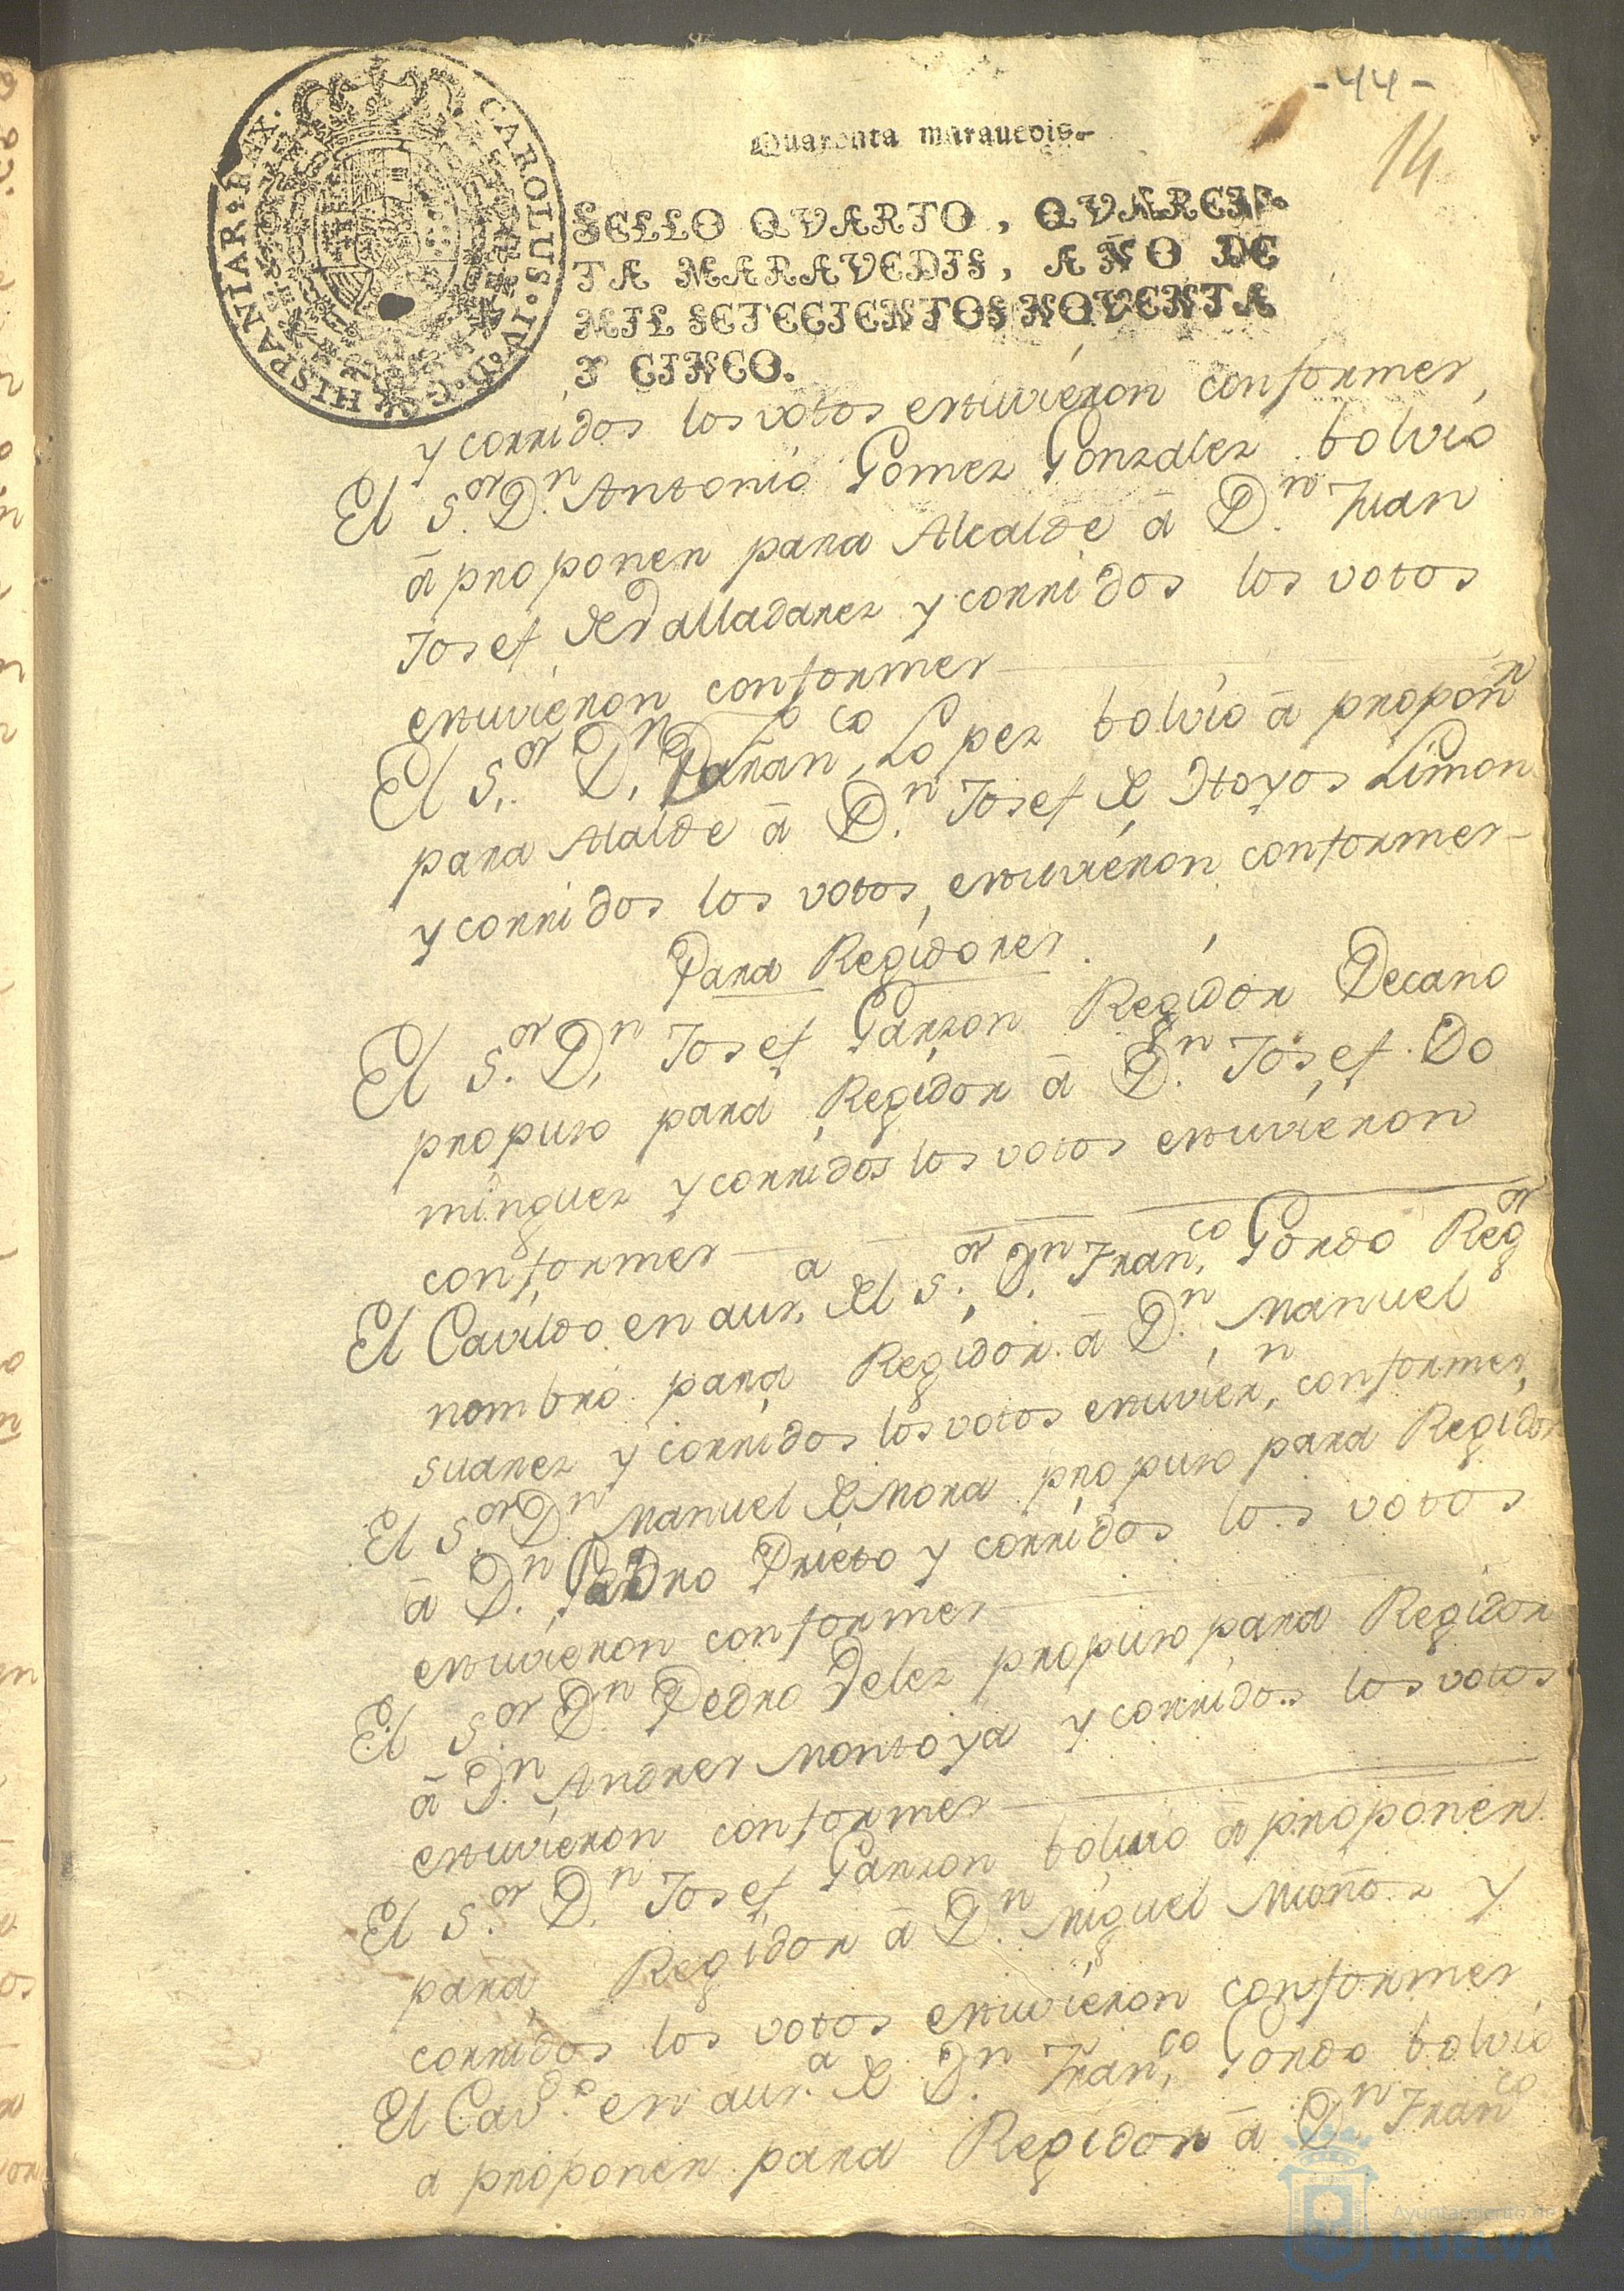 -44-
14
CAROLUS·IV·D·G·HISPANIAR·REX·
Quarenta marauedis.
SELLO QVARTO, QVAREN-
TA MARAVEDIS, AÑO DE
MIL SETECIENTOS NOVENTA
Y CINCO.
y corridos los votos estuvieron conformes,
El S.or D.n Antonio Gomez Gonzalez bolvio
á proponer para Alcalde á D.n Juan
Josef de Valladares y corridos los votos
estuvieron conformes
El S.or D.n Fran.co Lopez bolvio á propon.r
para Alalde á D.n Josef de Hoyos Limon
y corridos los votos, estuvieron conformes
Para Regidores.
El S.or D.n Josef Garzon Regidor Decano
propuso para Regidor á D.n Josef Do
minguez y corridos los votos estuvieron
conformes
El Cavildo en aus.a del S.or D.n Fran.co Gordo Reg.or
nombró para Regidor á D.n Manuel
Suarez y corridos los votos estuvier.n conformes,
El S.or D.n Manuel de Mora propuso para Regidor
á D.n Pedro Prieto y corridos los votos
estuvieron conformes
El S.or D.n Pedro Velez propuso para Regidor
á D.n Andres Montoya y corridos los votos
estuvieron conformes
El S.or D.n Josef Garzon bolvio á proponer
para Regidor á D.n Miguel Muñoz y
corridos los votos estuvieron conformes
El Cav.do en aus.a de D.n Fran.co Gordo bolvio
a proponer para Regidor á D.n Fran.co
Ayuntamiento de
HUELVA